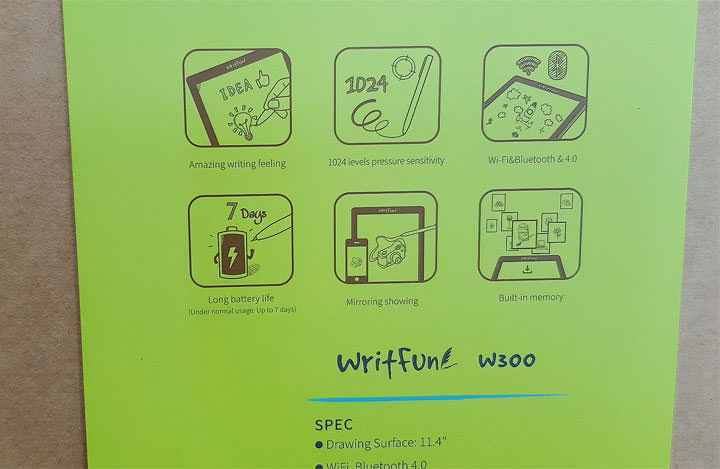 writfun
IDEA
Amazing writing feeling
1024
1024 levels pressure sensitivity
writfun
Wi-Fi&Bluetooth & 4.0
7 Days
Long battery life
(Under normal usage: Up to 7 days)
writfun
Mirroring showing
writfun
Built-in memory
writfun W300
SPEC
● Drawing Surface: 11.4"
● WiFi, Bluetooth 4.0